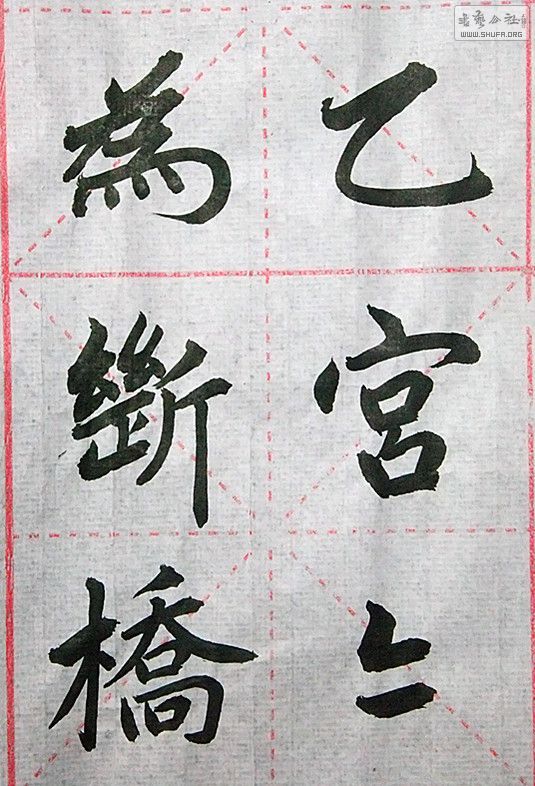 乙宮
為斷橋
書藝公社
WWW.SHUFA.ORG